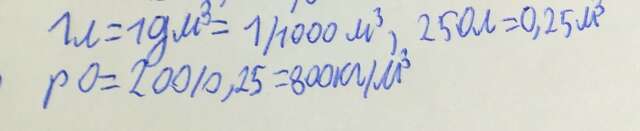 1л=1дм³= 1/1000 м³, 250л=0,25м³
pO=200/0,25=800кг/м³